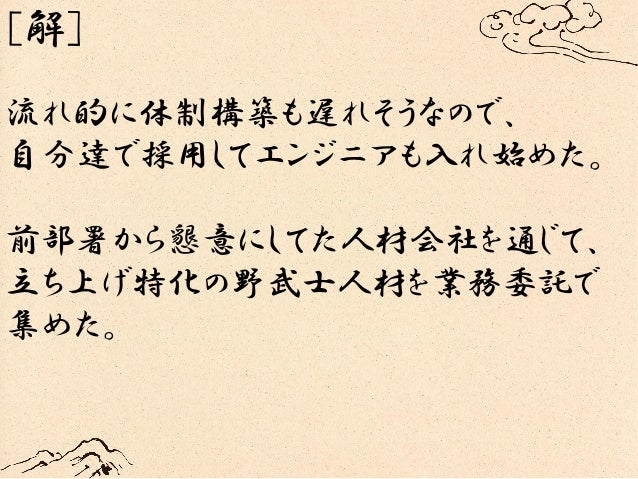 [解]
流れ的に体制構築も遅れそうなので、
自分達で採用してエンジニアも入れ始めた。
前部署から懇意にしてた人材会社を通じて、
立ち上げ特化の野武士人材を業務委託で
集めた。